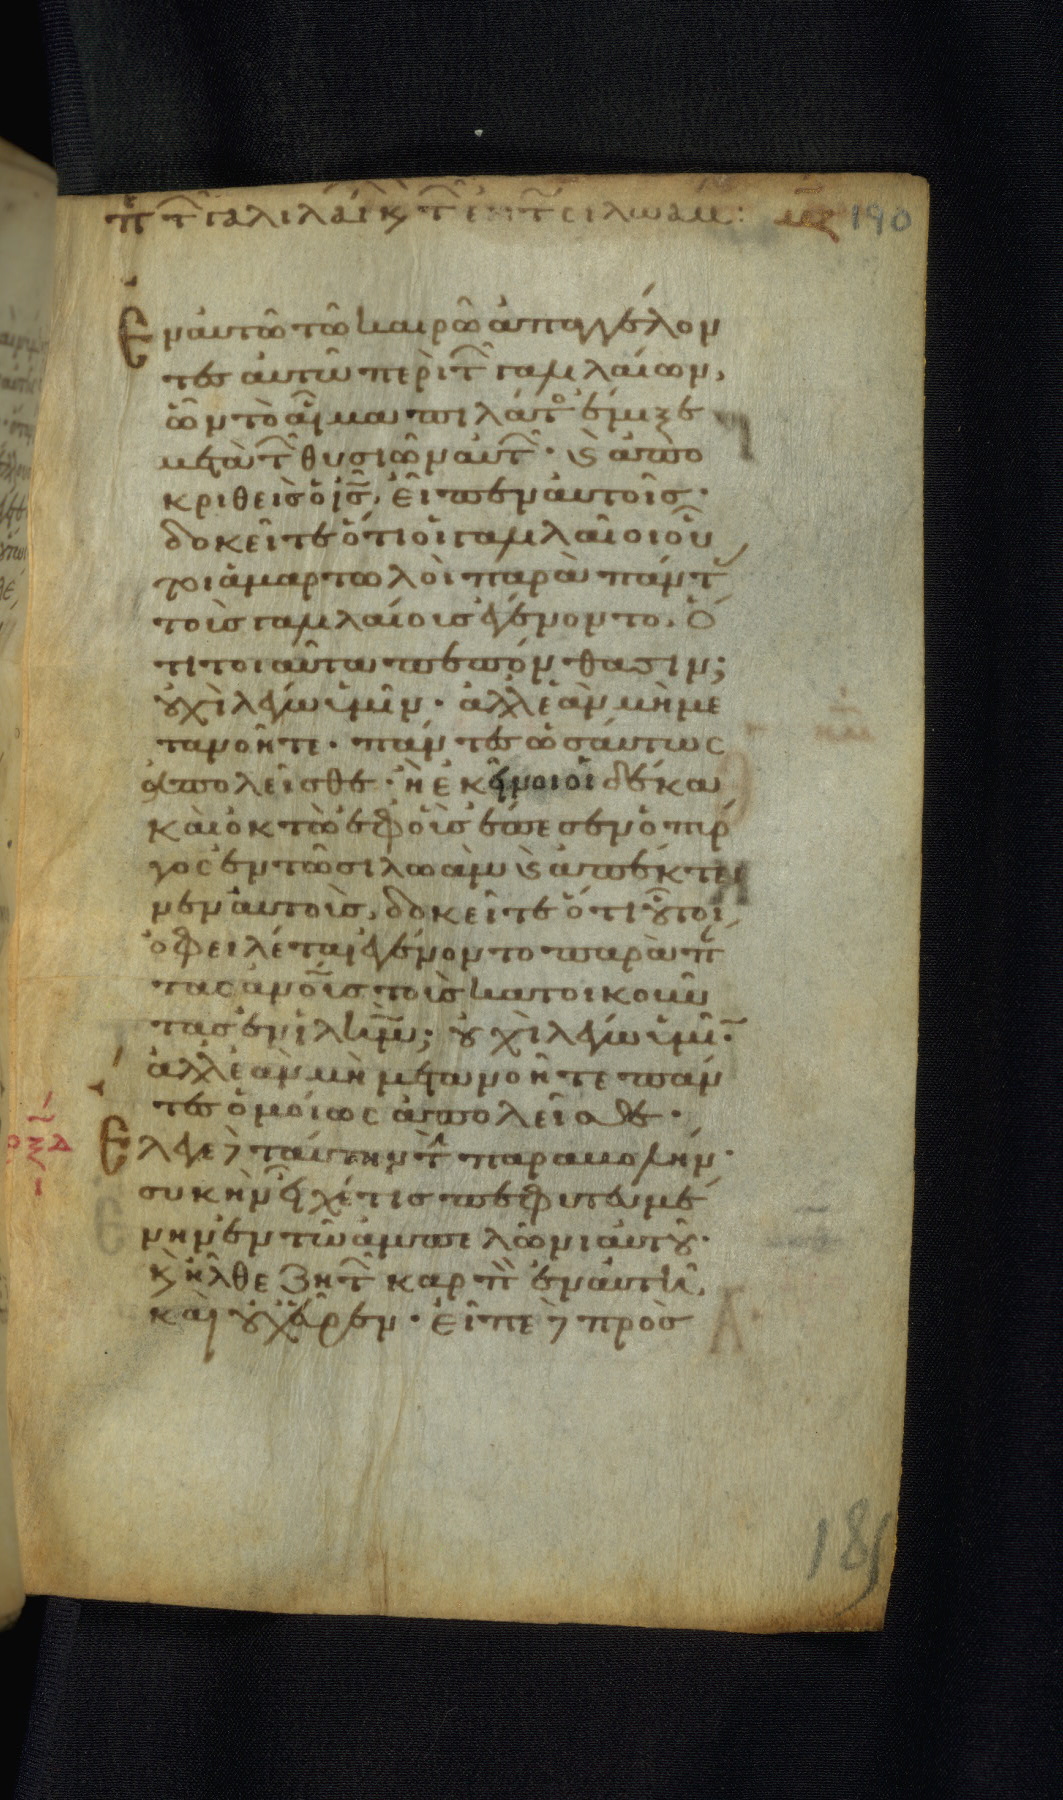 π τ γαλιλαί κ τ ἐν τ σιλωάμ: μζ 190
Ἐν αὐτῶ τῶ καιρῶ ἀπαγγέλον
τες αὐτῶ περὶ τ γαλιλαίων,
ὧν τὸ αἷμα πιλάτο ἔμιξε
μετὰ τ θυσιῶν αὐτ. κ ἀπο
κριθεὶς ὁ ις, εἶπεν αὐτοῖς·
δοκεῖτε ὅτι οἱ γαλιλαῖοι οὗ
τοι ἁμαρτωλοὶ παρὰ πάντ
τοὺς γαλιλαίους ἐγένοντο. ὅ
τι τοιαῦτα πεπόνθασιν;
οὐχὶ λέγω ὑμῖν· ἀλλ' ἐὰν μὴ με
τανοῆτε· πάντες ὡσαύτως
ἀπολεῖσθε· ἢ ἐκεῖνοι οἱ δέκα
καὶ ὀκτὼ ἐφ οἷς ἔπεσεν ὁ πύρ
γος ἐν τῶ σιλωὰμ κ ἀπέκτει
νεν αὐτοὺς, δοκεῖτε ὅτι οὗτοι
ὀφειλέται ἐγένοντο παρὰ π
τας ἀνους τοὺς κατοικοῦν
τας ἐν ιλημ; οὐχὶ λέγω ὑμῖ·
ἀλλ' ἐὰν μὴ μετανοῆτε πάν
τες ὁμοίως ἀπολεῖσθε·
Ἔλεγε δ ταύτην τ παραβολήν·
συκὴν εἶχέ τις πεφυτευμέ
νην ἐν τῶ ἀμπελῶνι αὐτοῦ·
κ ἦλθε ζητ καρπ ἐν αὐτῆ,
καὶ οὐχ εὗρεν· εἶπε δ πρὸς
189